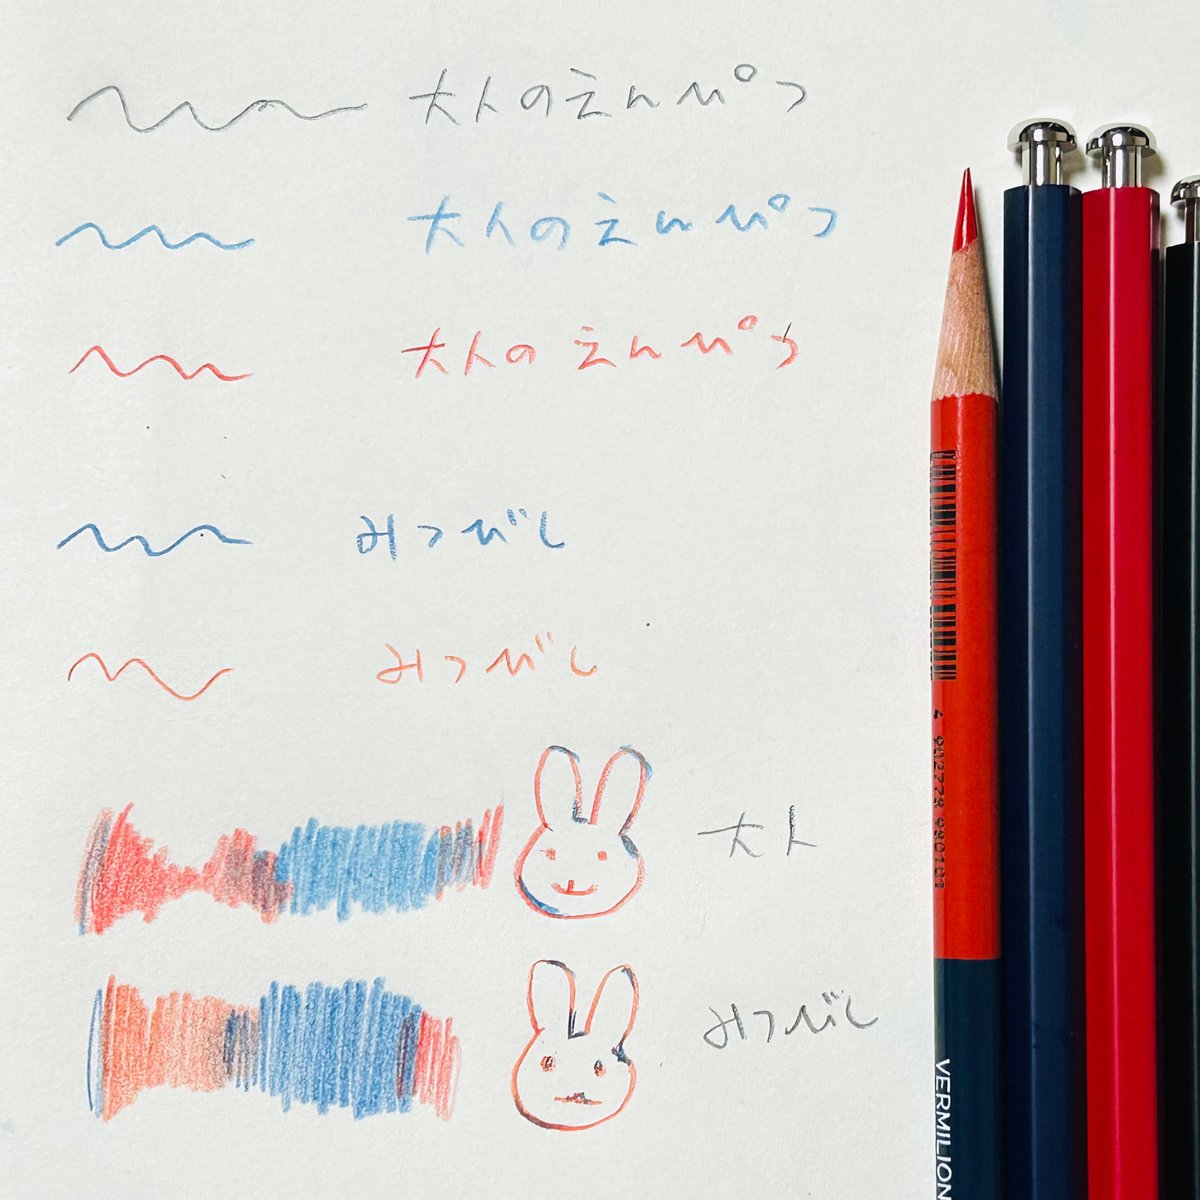 大人のえんぴつ
大人のえんぴつ
大人のえんぴつ
みつびし
みつびし
大人
みつびし
4 902778 990101
VERMILION